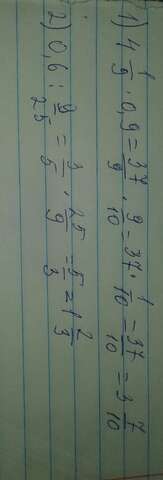 1) 4 1/9 · 0,9 = 37/9 · 9/10 = 37 · 1/10 = 37/10 = 3 7/10
2) 0,6 : 9/25 = 3/5 · 25/9 = 5/3 = 1 2/3